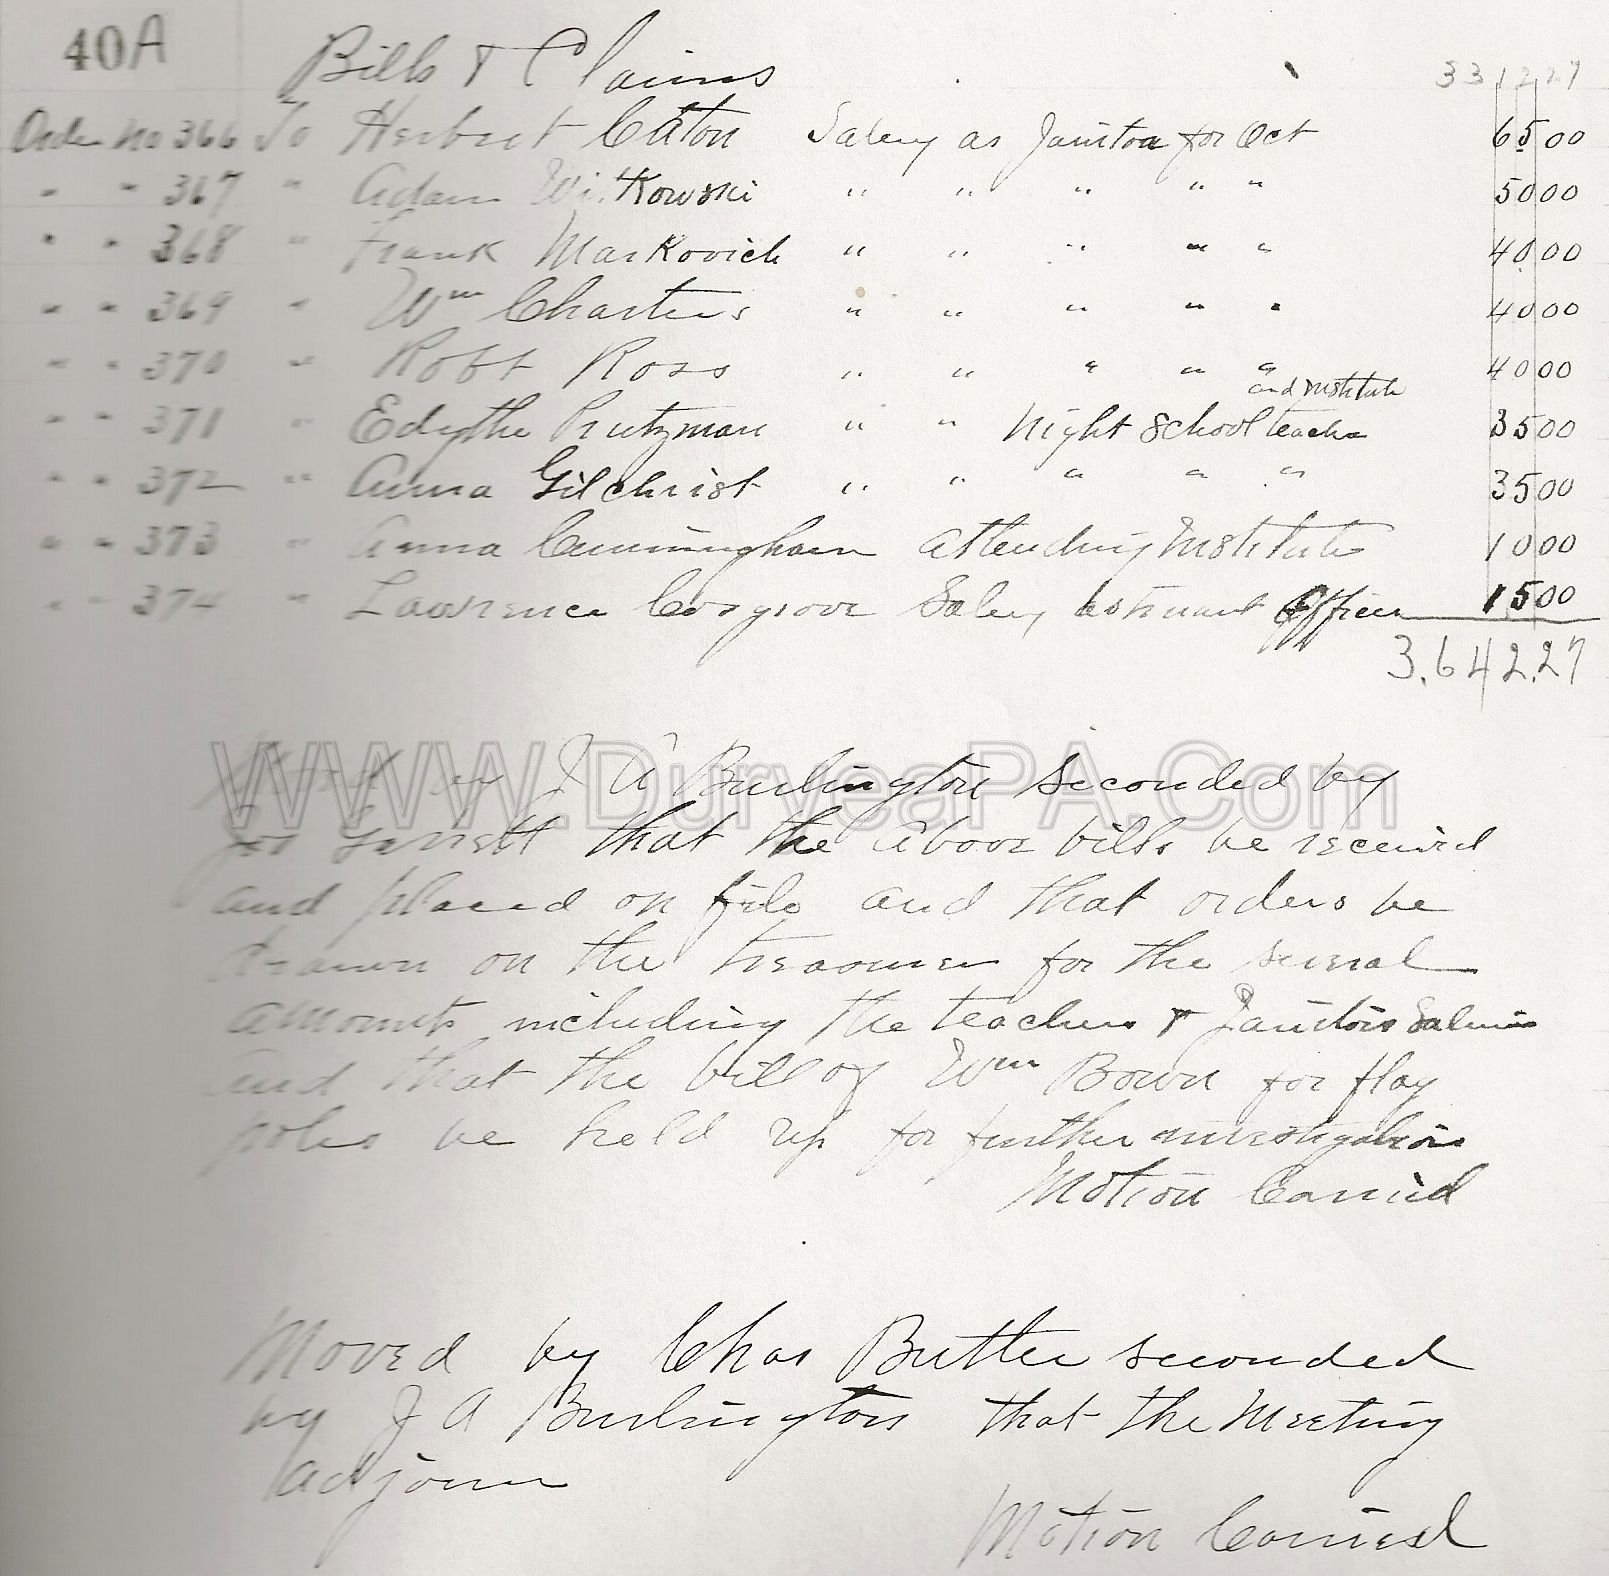 40A
Bills & Claims 3312 27
Order no 366 To Herbert Eaton Salary as Janitor for Oct 65 00
" " 367 " Adam Witkowski " " " " " 50 00
" " 368 " Frank Markovich " " " " " 40 00
" " 369 " Wm Charters " " " " " 40 00
" " 370 " Robt Ross " " " " " 40 00
and Institute
" " 371 " Edythe Prutzman " " Night School teacher 35 00
" " 372 " Anna Gilchrist " " " " " 35 00
" " 373 " Anna Cunningham Attending Institute 10 00
" " 374 " Lawrence Cosgrove Salary as truant Officer 15 00
3,642.27
www.DuryeaPA.Com
by J A Burlington seconded by
Garrett that the above bills be received
and placed on file and that orders be
drawn on the treasurer for the several
amounts including the teachers & Janitors Salaries
and that the bill of Wm Bown for flag
poles be held up for further investigation
Motion Carried
Moved by Chas Butler seconded
by J A Burlington that the Meeting
adjourn
Motion Carried